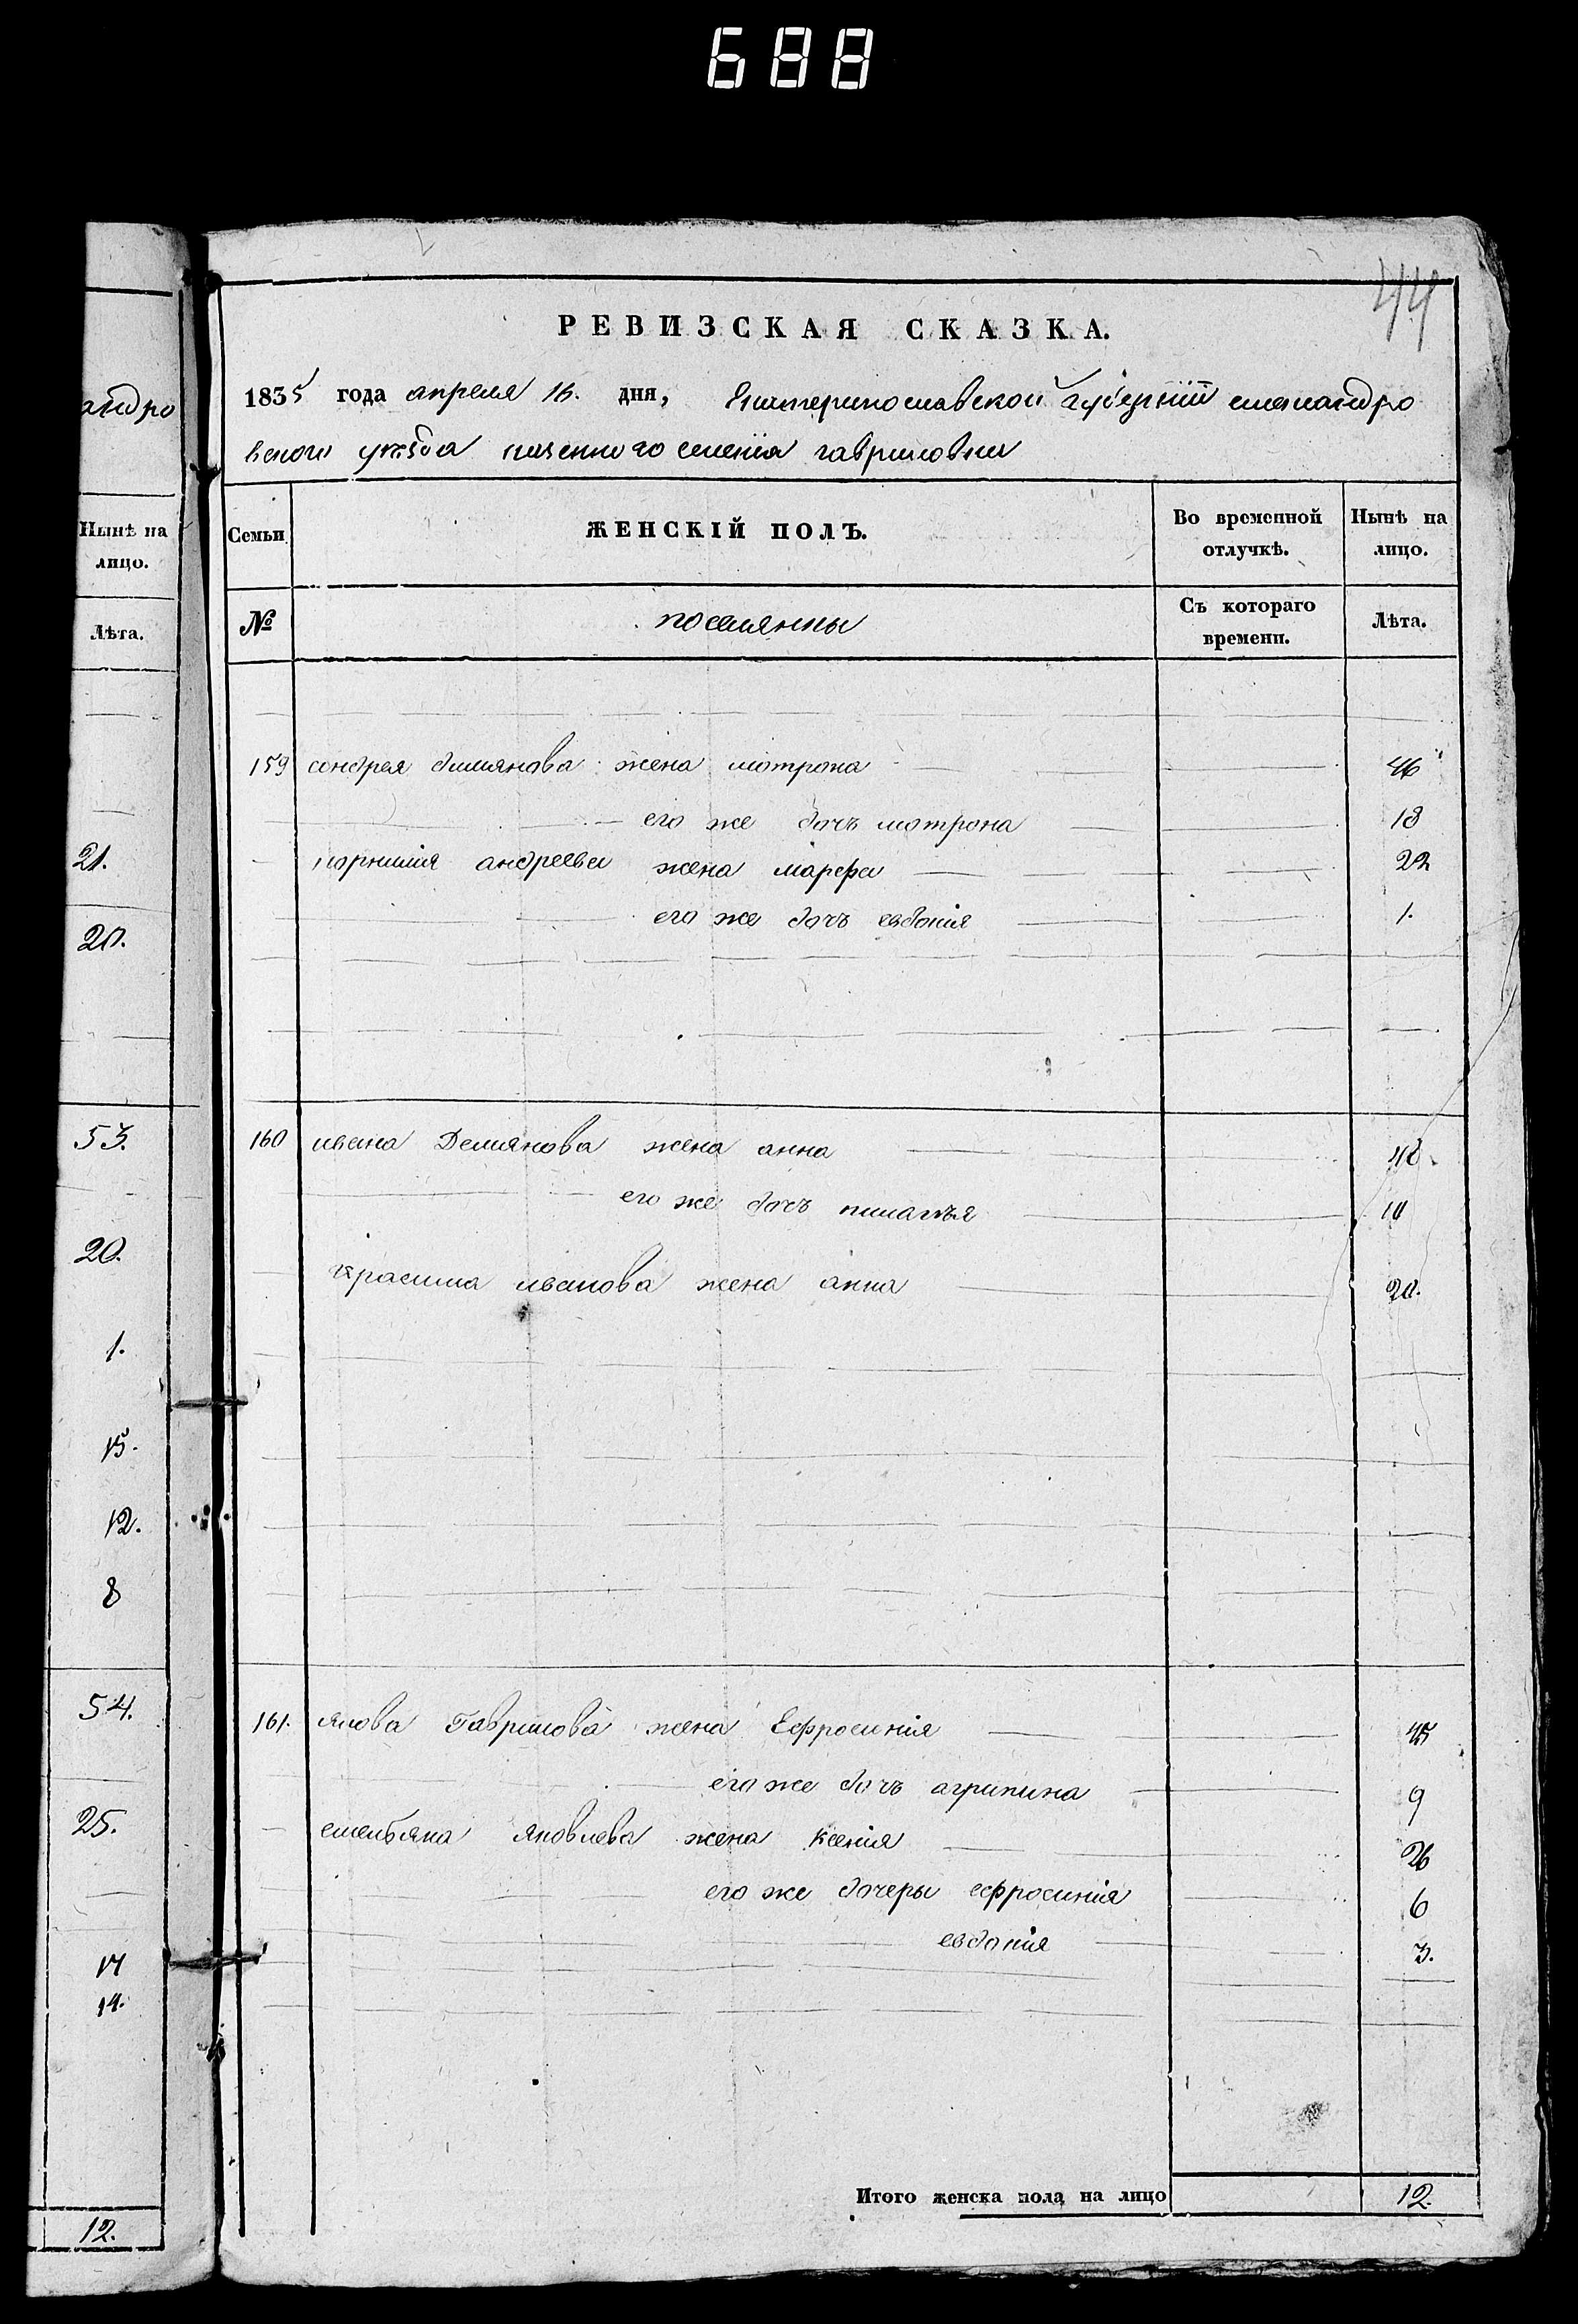 688
44
РЕВИЗСКАЯ СКАЗКА.
1835 года апреля 16. дня, Екатеринославской Губернiи александро
вского уезда казенного селенiя гавриловки
Семьи
ЖЕНСКIЙ ПОЛЪ.
Во временной отлучкѣ.
Нынѣ на лицо.
№
поселянны
Съ котораго времени.
Лѣта.
159 андрея димянова жена мотрона 46
его же дочъ мотрона 18
корнилiя андреева жена марфа 22
его же дочъ евдокiя 1.
160 ивана Демянова жена анна 40.
его же дочъ пилагѣя 10
герасима иванова жена анна 20.
161. якова Гаврилова жена Ефросинiя 45
его же дочъ агрипина 9
емельяна яковлева жена ксенiя 26
его же дочеры ефросинiя 6
евдокiя 3.
Итого женска пола на лицо 12.
андро
Нынѣ на
лицо.
Лѣта.
21.
20.
53.
20.
1.
15.
12.
8
54.
25.
17
14.
12.